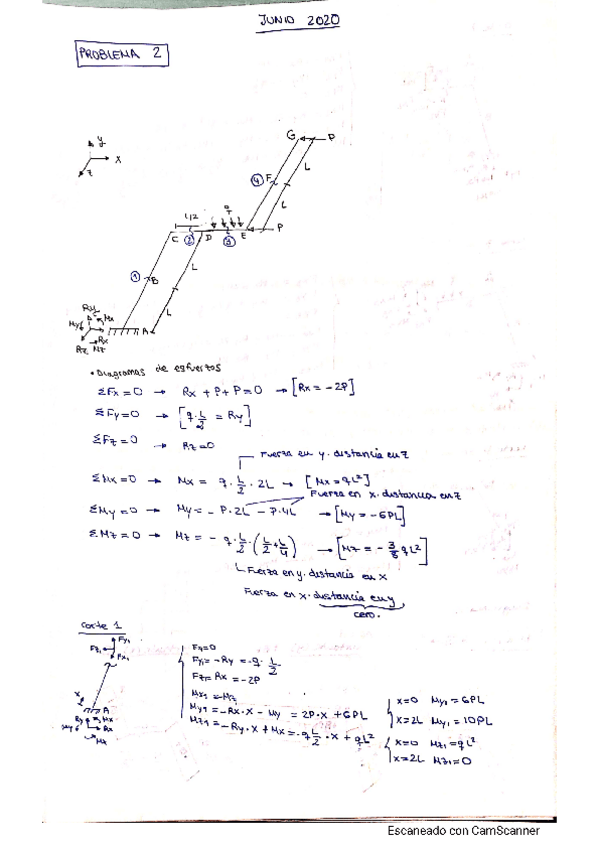 JUNIO 2020
PROBLEMA 2
G P
y
x
z
L
④ F
L/2 q L
C ② D ③ E P
① B L
L
Ry
My Mx
A
Rx
Rz Mz
• Diagramas de esfuerzos
ΣFx = 0 → Rx + P + P = 0 → [Rx = -2P]
ΣFy = 0 → [q · L/2 = Ry]
ΣFz = 0 → Rz = 0
Fuerza en y. distancia en z
ΣMx = 0 → Mx = q · L/2 · 2L → [Mx = qL²]
Fuerza en x. distancia en z
ΣMy = 0 → My = - P·2L - P·4L → [My = -6PL]
ΣMz = 0 → Mz = - q · L/2 · (L/2 + L/4) → [Mz = - 3/8 qL²]
Fuerza en y. distancia en x
Fuerza en x. distancia en y
cero.
Corte 1
Fy1
Fz1
Fx1
x
A
Ry Mx
My Rx
Mz
Fx = 0
Fy1 = -Ry = -q · L/2
Fz = Rx = -2P
Mx1 = -Mz
My1 = -Rx · x - My = 2P·x + 6PL
Mz1 = -Ry · x + Mx = -q L/2 · x + qL²
x=0 My1 = 6PL
x=2L My1 = 10PL
x=0 Mz1 = qL²
x=2L Mz1 = 0
Escaneado con CamScanner